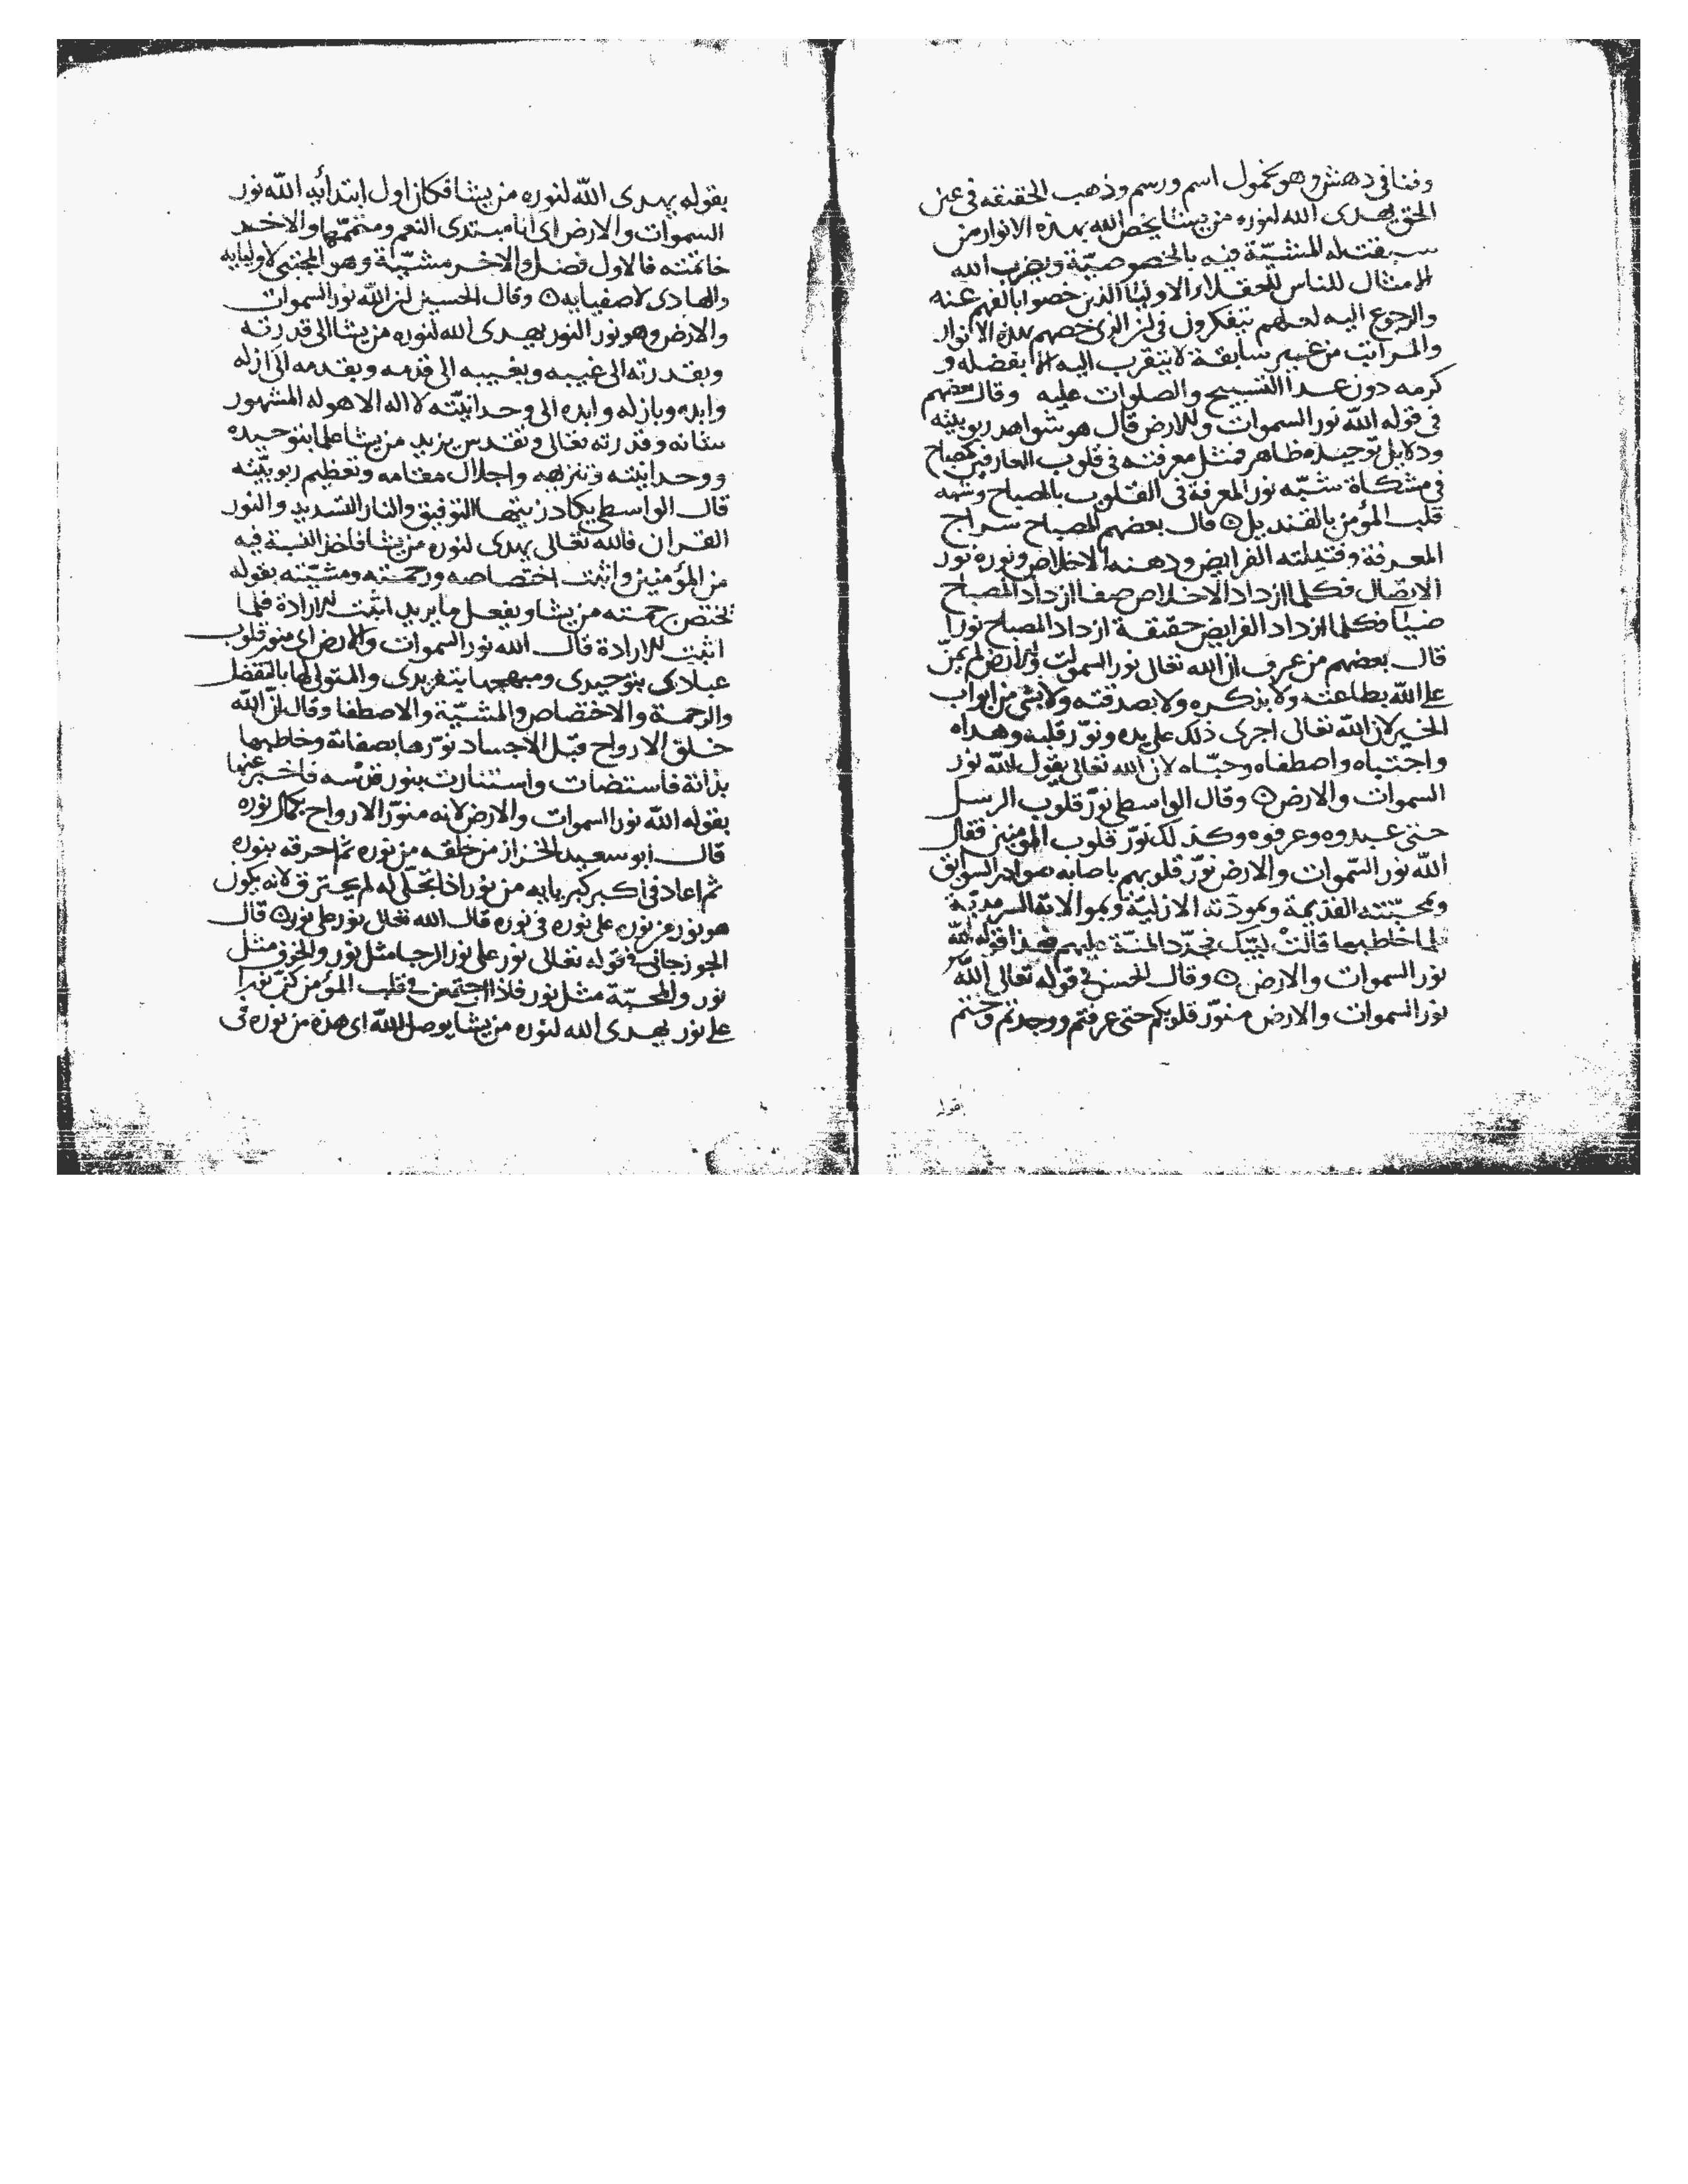 وفنا في دهش وهو خمول اسم ورسم وذهب الحقيقة في عين
الحق يهدى الله لنوره من يشا يخص الله بهذه الانوار من
سبقت له المشيّة فيه بالخصوصيّة ويضرب الله
الامثال للناس للعقلاء الاوليا الذين خصوا بالفهم عنه
والرجوع اليه لعلهم يتفكرون في ان الذى خصهم بهذه الانوار
والمراتب من غير سابقة لا يتقرب اليه الا بفضله و
كرمه دون عدا التسبيح والصلوات عليه وقال بعضهم
في قوله الله نور السموات والارض قال هو شواهد ربوبيته
ودلايل توحيده ظاهر فمثل معرفته في قلوب العارفين كمصباح
في مشكاة شبّه نور المعرفة في القلوب بالمصباح وشبه
قلب المؤمن بالقنديل ۞ قال بعضهم المصباح سراج
المعرفة وفتيلته الفرايض ودهنه الاخلاص ونوره نور
الاتصال فكلما ازداد الاخلاص صفا ازداد المصباح
ضيا فكلما ازداد الفرايض حقيقة ازداد المصباح نورا
قال بعضهم من عرف ان الله تعالى نور السموات والارض لم يمنّ
على الله بطاعته ولا بذكره ولا بصدقته ولا بشى من ابواب
الخير لان الله تعالى اجرى ذلك على يده ونوّر قلبه وهداه
واجتباه واصطفاه وحبّاه لان الله تعالى يقول الله نور
السموات والارض ۞ وقال الواسطى نوّر قلوب الرسل
حتى عبدوه وعرفوه وكذلك نوّر قلوب المومنين فقال
الله نور السّموات والارض نوّر قلوبهم باصابه صوادر السوابق
وبمحبّته القديمة وبمودّته الازليّة وبموالاته السرمديّة
فلما خاطبها قالت لبّيك فجرّد المنّة عليهم فهذا قوله الله
نور السموات والارض ۞ وقال الحسن في قوله تعالى الله
نور السموات والارض منوّر قلوبكم حتى عرفتم ووجدتم وختم
بقوله
بقوله يهدى الله لنوره من يشا فكان اول ابتدائه الله نور
السموات والارض اى انا مبتدى النعم ومتممها والاخر
خاتمته فالاول فضل والاخر مشيّة وهو المجتبى لاوليايه
والهادى لاصفيايه ۞ وقال الحسين ان الله نور السموات
والارض وهو نور النور يهدى الله لنوره من يشا الى قدرته
وبقدرته الى غيبه وبغيبه الى قدمه وبقدمه الى ازله
وابده وبازله وابده الى وحدانيّته لا اله الا هو له المشهور
شانه وقدرته تعالى وتقدس يزيد من يشا علما بتوحيده
ووحدانيته وتنزيهه واجلال مقامه وتعظيم ربوبيّته
قال الواسطى يكاد زيتها التوفيق والنار التسديد والنور
القران فالله تعالى يهدى لنوره من يشا فاخذ النسبة فيه
من المؤمنين واثبت اختصاصه ورحمته ومشيّته بقوله
يختص برحمته من يشا ويفعل ما يريد اثبت الارادة فلما
اثبت الارادة قال الله نور السموات والارض اى منور قلوب
عبادى بتوحيدى ومبهجها بتفريدى والمتولى لها بالتفضل
والرحمة والاختصاص والمشيّة والاصطفا وقال انّ الله
خلق الارواح قبل الاجساد نوّرها بصفاته وخاطبها
بذاته فاستضات واستنارت بنور قدسه فاخبر عنها
بقوله الله نور السموات والارض لانه منوّر الارواح بكمال نوره
قال ابو سعيد الخزاز من خلقه من نوره ثم احرقه بنوره
ثم اعاد في اكبر كبريايه من نور اذا تجلّى له لم يحترق لانه يكون
هو نور من نوره على نوره في نوره قال الله تعالى نور على نور ۞ قال
الجوزجانى في قوله تعالى نور على نور الرجا مثل نور والخوف مثل
نور والمحبّة مثل نور فاذا اجتمعن في قلب المؤمن كنّ نورا
على نور يهدى الله لنوره من يشا يوصل الله اى هذه من نوره في